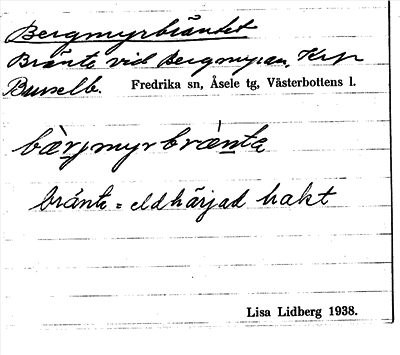 Bergmyrbräntet
Bränte vid Bergmyran, Krp
Busselb. Fredrika sn, Åsele tg, Västerbottens l.
bærjmyrbræ̀nta
bränte = eldhärjad trakt
Lisa Lidberg 1938.